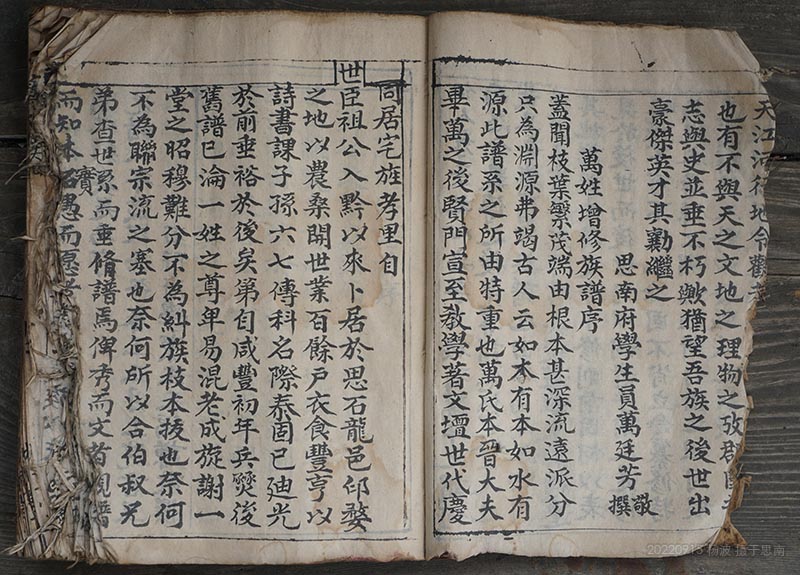 天江河行地令觀
也有不與天之文地之理物之攷郡國
志與史並垂不朽歟猶望吾族之後世出
豪傑英才其勷繼之
思南府學生員萬廷芳敬撰
萬姓增修族譜序
蓋聞枝葉蘩茂端由根本甚深流遠派分
只為淵源弗竭古人云如木有本如水有
源此譜系之所由特重也萬氏本晉大夫
畢萬之後賢門宣至教學著文壇世代慶
同居宅旌孝里自
世臣祖公入黔以來卜居於思石龍邑邱婺
之地以農桑開世業百餘戶衣食豐亨以
詩書課子孫六七傳科名際泰固已廸光
於前垂裕於後矣第自咸豐初年兵燹後
舊譜已淪一姓之尊卑易混老成旋謝一
堂之昭穆難分不為糾族枝本拔也奈何
不為聯宗流之塞也奈何所以合伯叔兄
弟查世系而垂脩譜焉俾秀而文者覩譜
而知本實愚而愿者
20220915 杨波 摄于思南